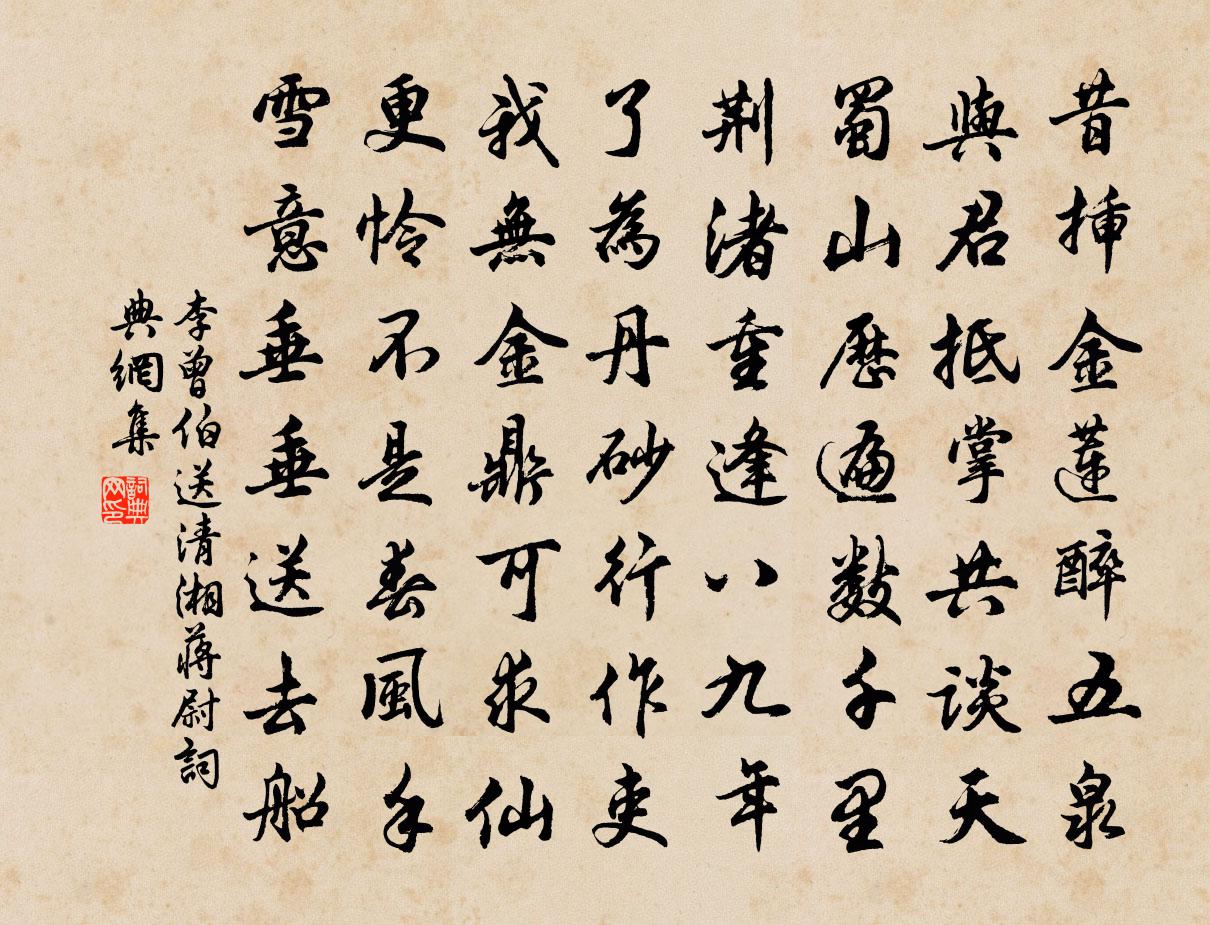 昔揷金蓮醉五泉
與君抵掌共談天
蜀山歷遍數千里
荆渚重逢八九年
了為丹砂行作吏
我無金鼎可求仙
更怜不是春風手
雪意垂垂送去船
李曾伯送清湘蔣尉詞
典網集
詞典
网印